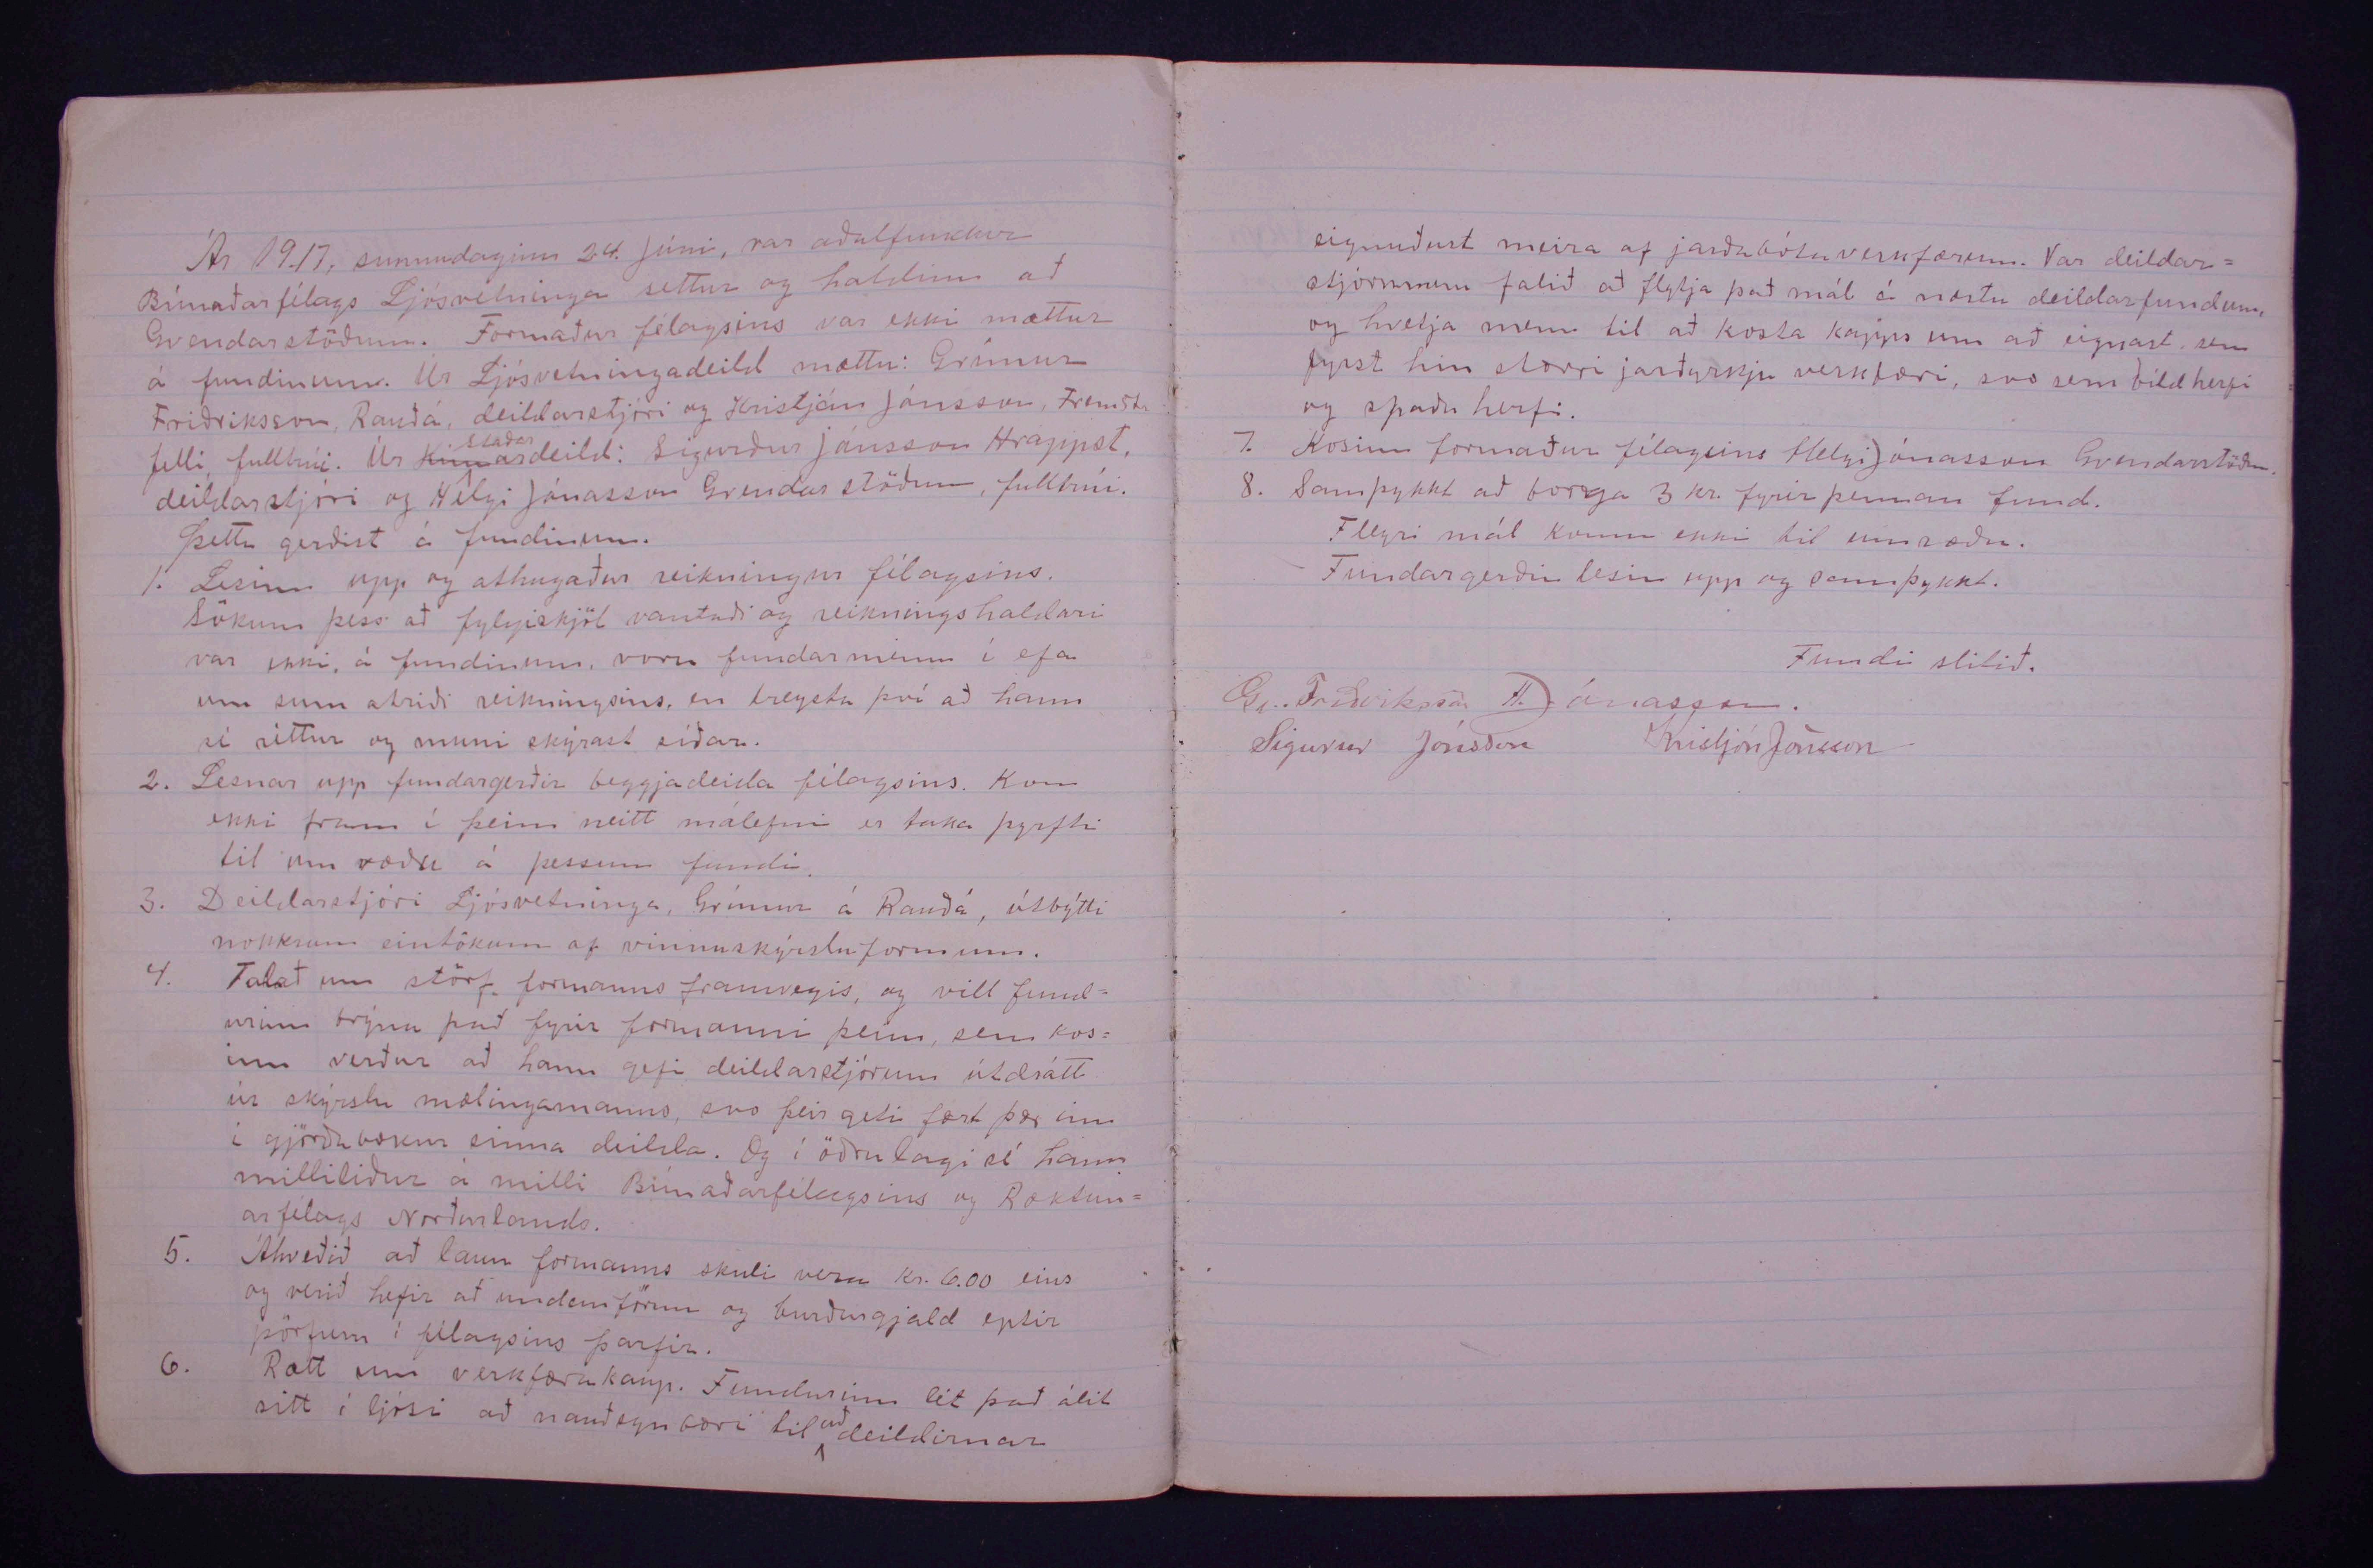 Ár 1917, sunnudaginn 24. Júni, var aðalfundur
Búnaðarfélags Ljósvetninga settur og haldinn að
Gvendarstöðum. Formaður félagsins var ekki mættur
á fundinum. Úr Ljósvetningadeild mættu: Grímur
Friðriksson, Rauðá, deildarstjóri og Kristján Jónsson, Fremsta
felli, fulltrúi. Úr staðardeild: Sigurður Jónsson Hrappst.
deildarstjóri og Helgi Jónasson Gvendarstöðum, fulltrúi.
Þetta gerðist á fundinum.
1. Lesinn upp og athugaður reikningur félagsins.
Sökum þess að fylgiskjöl vantaði og reikningshaldari
var ekki á fundinum, voru fundarmenn í efa
um sum atriði reikningsins, en treysta því að hann
sé réttur og muni skýrast síðar.
2. Lesnar upp fundargerðir beggja deilda félagsins. Kom
ekki fram í þeim neitt málefni er taka þyrfti
til umræðu á þessum fundi.
3. Deildarstjóri Ljósvetninga, Grímur á Rauðá, útbýtti
nokkrum eintökum af vinnuskýrsluformum.
4. Talað um störf formanns framvegis, og vill fund=
urinn brýna það fyrir formanni þeim, sem kos=
inn verður að hann gefi deildarstjórum útdrátt
úr skýrslu mælingamanns, svo þeir geti fært þær inn
í gjörðabækur sinna deilda. Og í öðru lagi sé hann
milliliður á milli Búnaðarfélagsins og Ræktun=
arfélags Norðurlands.
5. Ákveðið að laun formanns skuli vera kr. 6.00 eins
og verið hefir að undanförnu og burðargjald eptir
þörfum í félagsins þarfir.
6. Rætt um verkfærakaup. Fundurinn lét það álit
sitt í ljósi að nauðsyn bæri til að deildirnar
eignuðust meira af jarðabótaverkfærum. Var deildar=
stjórunum falið að flytja það mál á næstu deildarfundum,
og hvetja menn til að kosta kapps um að eignast sem
fyrst hin stærri jarðyrkju verkfæri, svo sem bíldherfi
og spaðaherfi.
7. Kosinn formaður félagsins Helgi Jónasson Gvendarstöðum.
8. Samþykkt að borga 3 kr. fyrir þennan fund.
Fleyri mál komu ekki til umræðu.
Fundargerðin lesin upp og samþykkt.
Fundi slitið.
Gr. Friðriksson H. Jónasson.
Sigurður Jónsson Kristján Jónsson